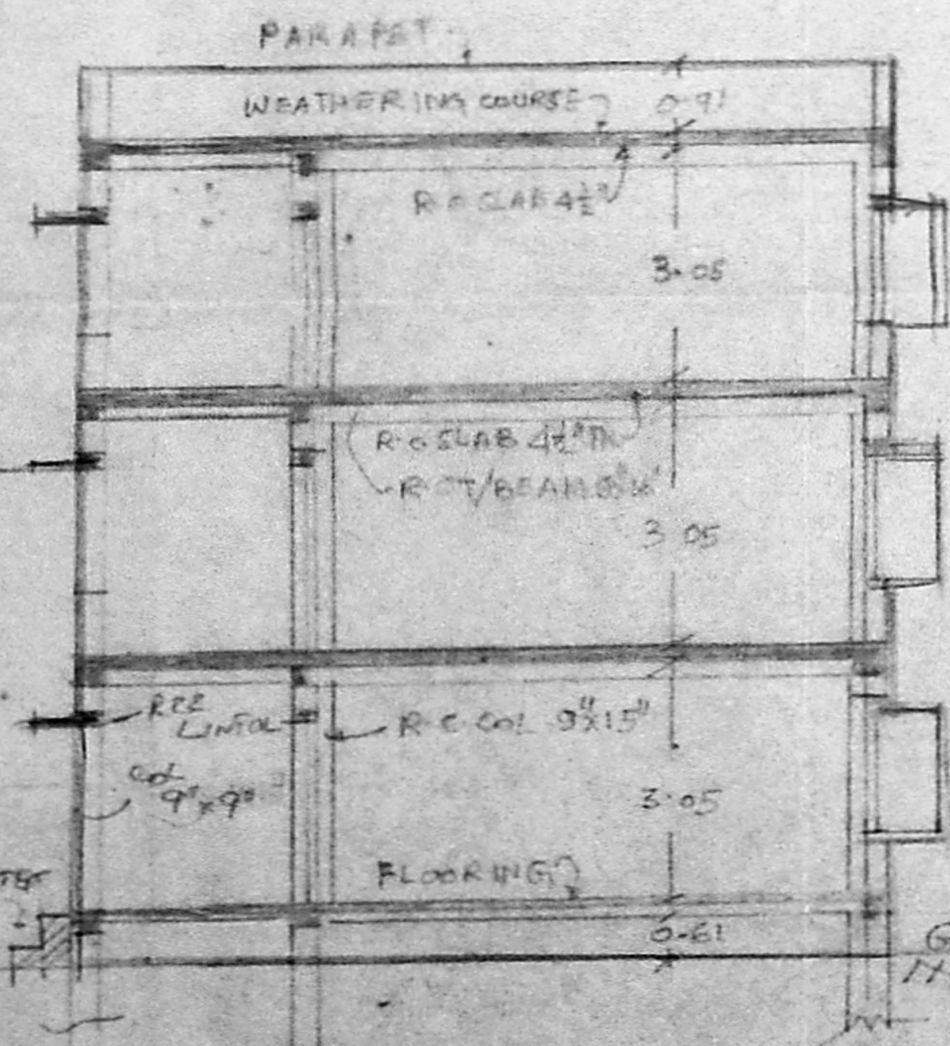 PARAPET
WEATHERING COURSE
0.91
R.C SLAB 4½"
3.05
R.C SLAB 4½" TH
R.C T/BEAM
3.05
RCC
LINTOL
R.C. COL 9"x15"
COL
9"x9"
3.05
FLOORING
0.61
G